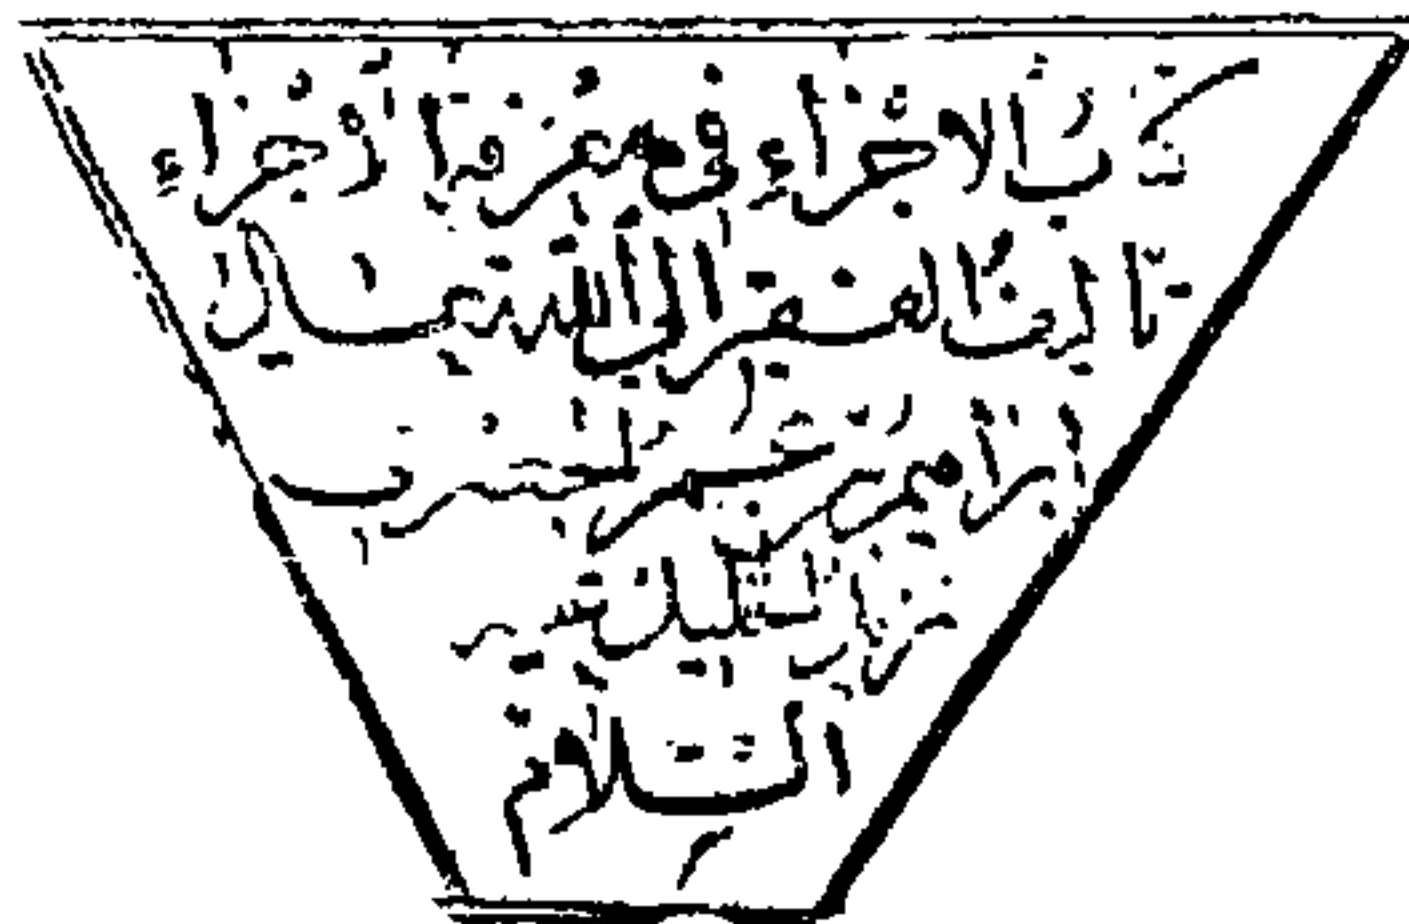 كِتَابُ الاجْزَاءِ فِي مَعْرِفَةِ الأجْزَاءِ
تَالِيفُ الفقير الى الله تعالى
ابراهيم بن عمر الجعبري
نزيل الخليل عليه
السَّلامُ